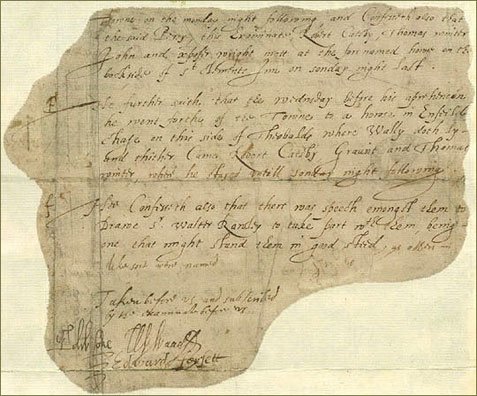 Towne on the monday night following and Confesseth also that
the said Percy this Examinate Robert Catesby Thomas winter
John and xpofer wright mett at the forenamed house on the
backside of St Clements Inn on sonday night last.
He further saith that the wednesday before his apprehension
he went forthe of the Towne to a house in Enfield
chase on this side of Theobalds where Wally doth ly
and thither Came Robert Catesby Graunt and Thomas
winter where he stayed untill sonday night following
He Confesseth also that there was speech emongst them to
Drawe Sr Walter Rawley to take part wth them being
one that might stand them in good steed, as others in
like sort were named
Taken before us and subscribed
by the examinate before us
Edw Coke W Waad
Edward Forsett